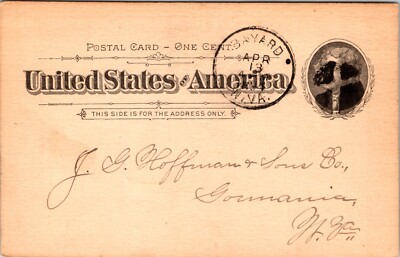 POSTAL CARD - ONE CENT.
United States of America.
THIS SIDE IS FOR THE ADDRESS ONLY.
BAYARD
APR
13
W.VA.
J. G. Hoffman & Sons Co.,
Gormania,
W. Va.